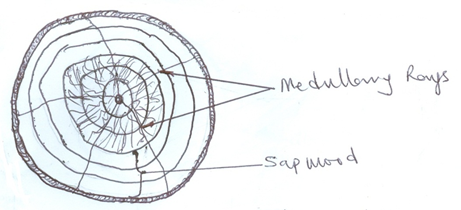 Medullary Rays
Sapwood